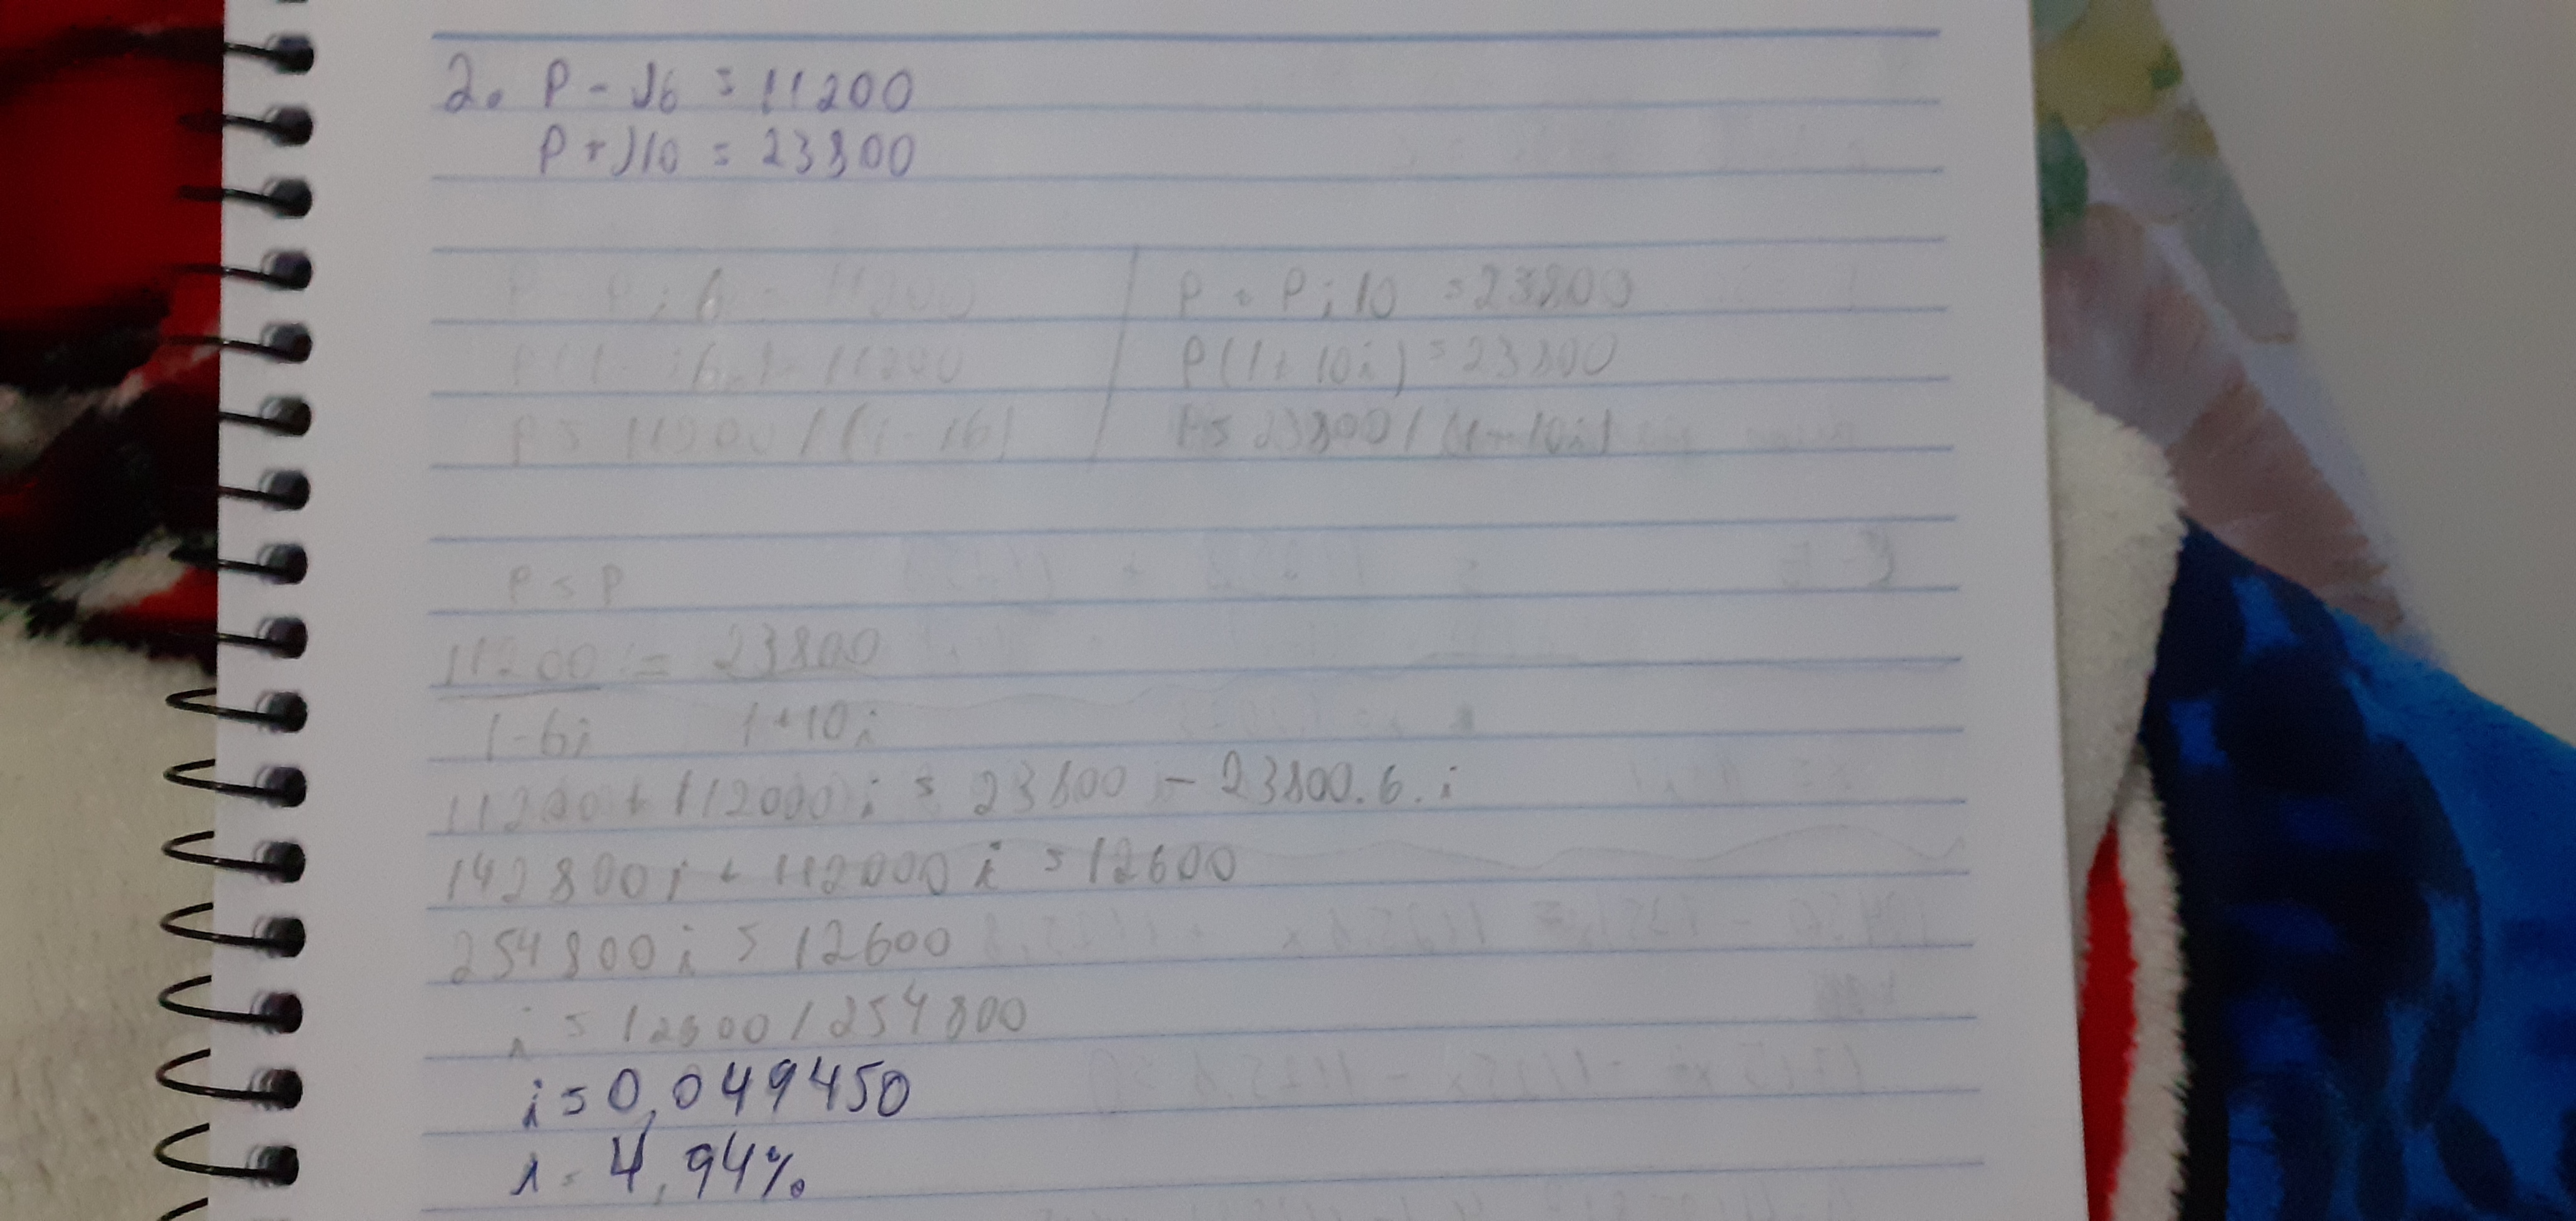 2. P - J6 = 11200
P + J10 = 23800
P - P i 6 = 11200
P(1 - i6) = 11200
P = 11200 / (1 - i6)
P + P i 10 = 23800
P(1 + 10i) = 23800
P = 23800 / (1 + 10i)
P = P
11200 = 23800
1-6i 1+10i
11200 + 112000i = 23800 - 23800.6.i
142800i + 112000i = 12600
254800i = 12600
i = 12600 / 254800
i = 0,049450
i = 4,94%